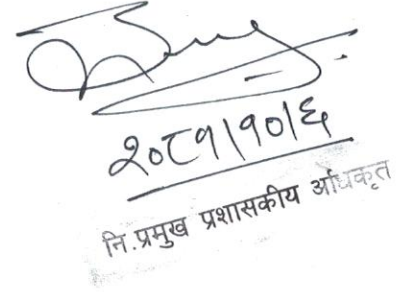 २०८१।१०।६
नि.प्रमुख प्रशासकीय अधिकृत